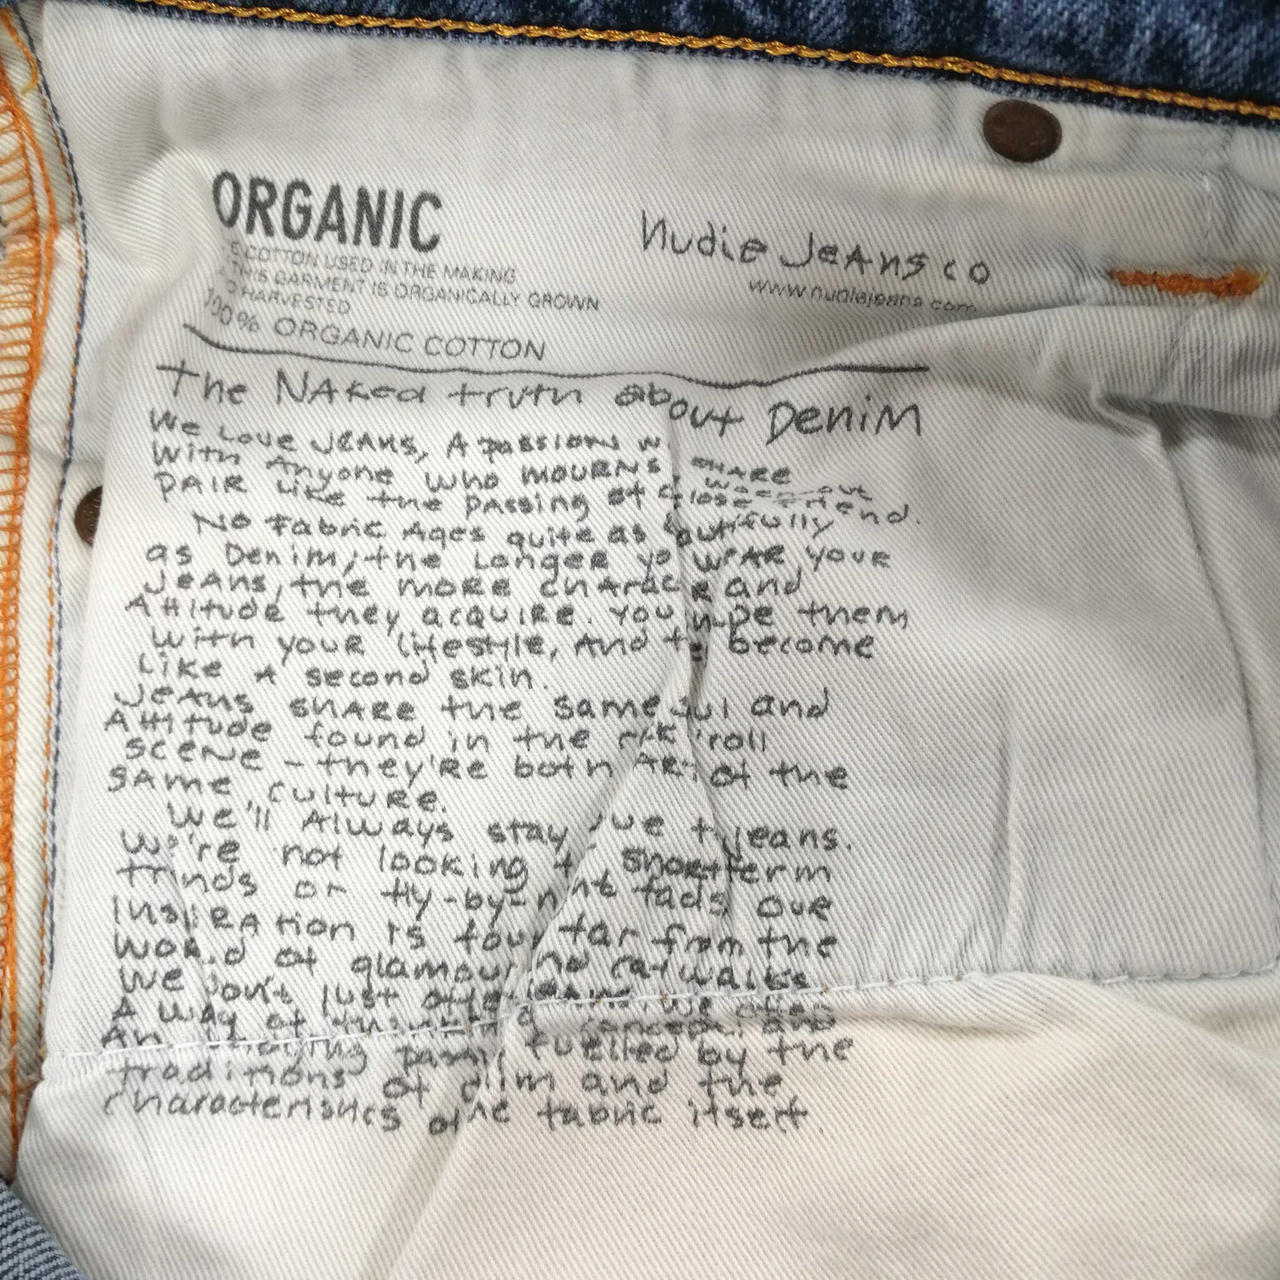 ORGANIC
COTTON USED IN THE MAKING
THIS GARMENT IS ORGANICALLY GROWN
HARVESTED
100% ORGANIC COTTON
Nudie Jeans co
www.nudiejeans.com
The Naked truth about Denim
We love jeans, A passion we share
with anyone who mourns a worn-out
pair like the passing of a close friend.
No fabric ages quite as beautifully
as Denim, the longer you wear your
jeans, the more character and
Attitude they acquire. You shape them
with your lifestyle, and they become
like a second skin.
Jeans share the same soul and
Attitude found in the rock'n'roll
scene - they're both part of the
same culture.
We'll always stay true to jeans.
We're not looking to short-term
trends or fly-by-night fads, our
inspiration is found far from the
world of glamour and catwalks
We don't just offer jeans, we offer
A way of thinking, a concept, and
An undying passion fuelled by the
traditions of denim and the
characteristics of the fabric itself.